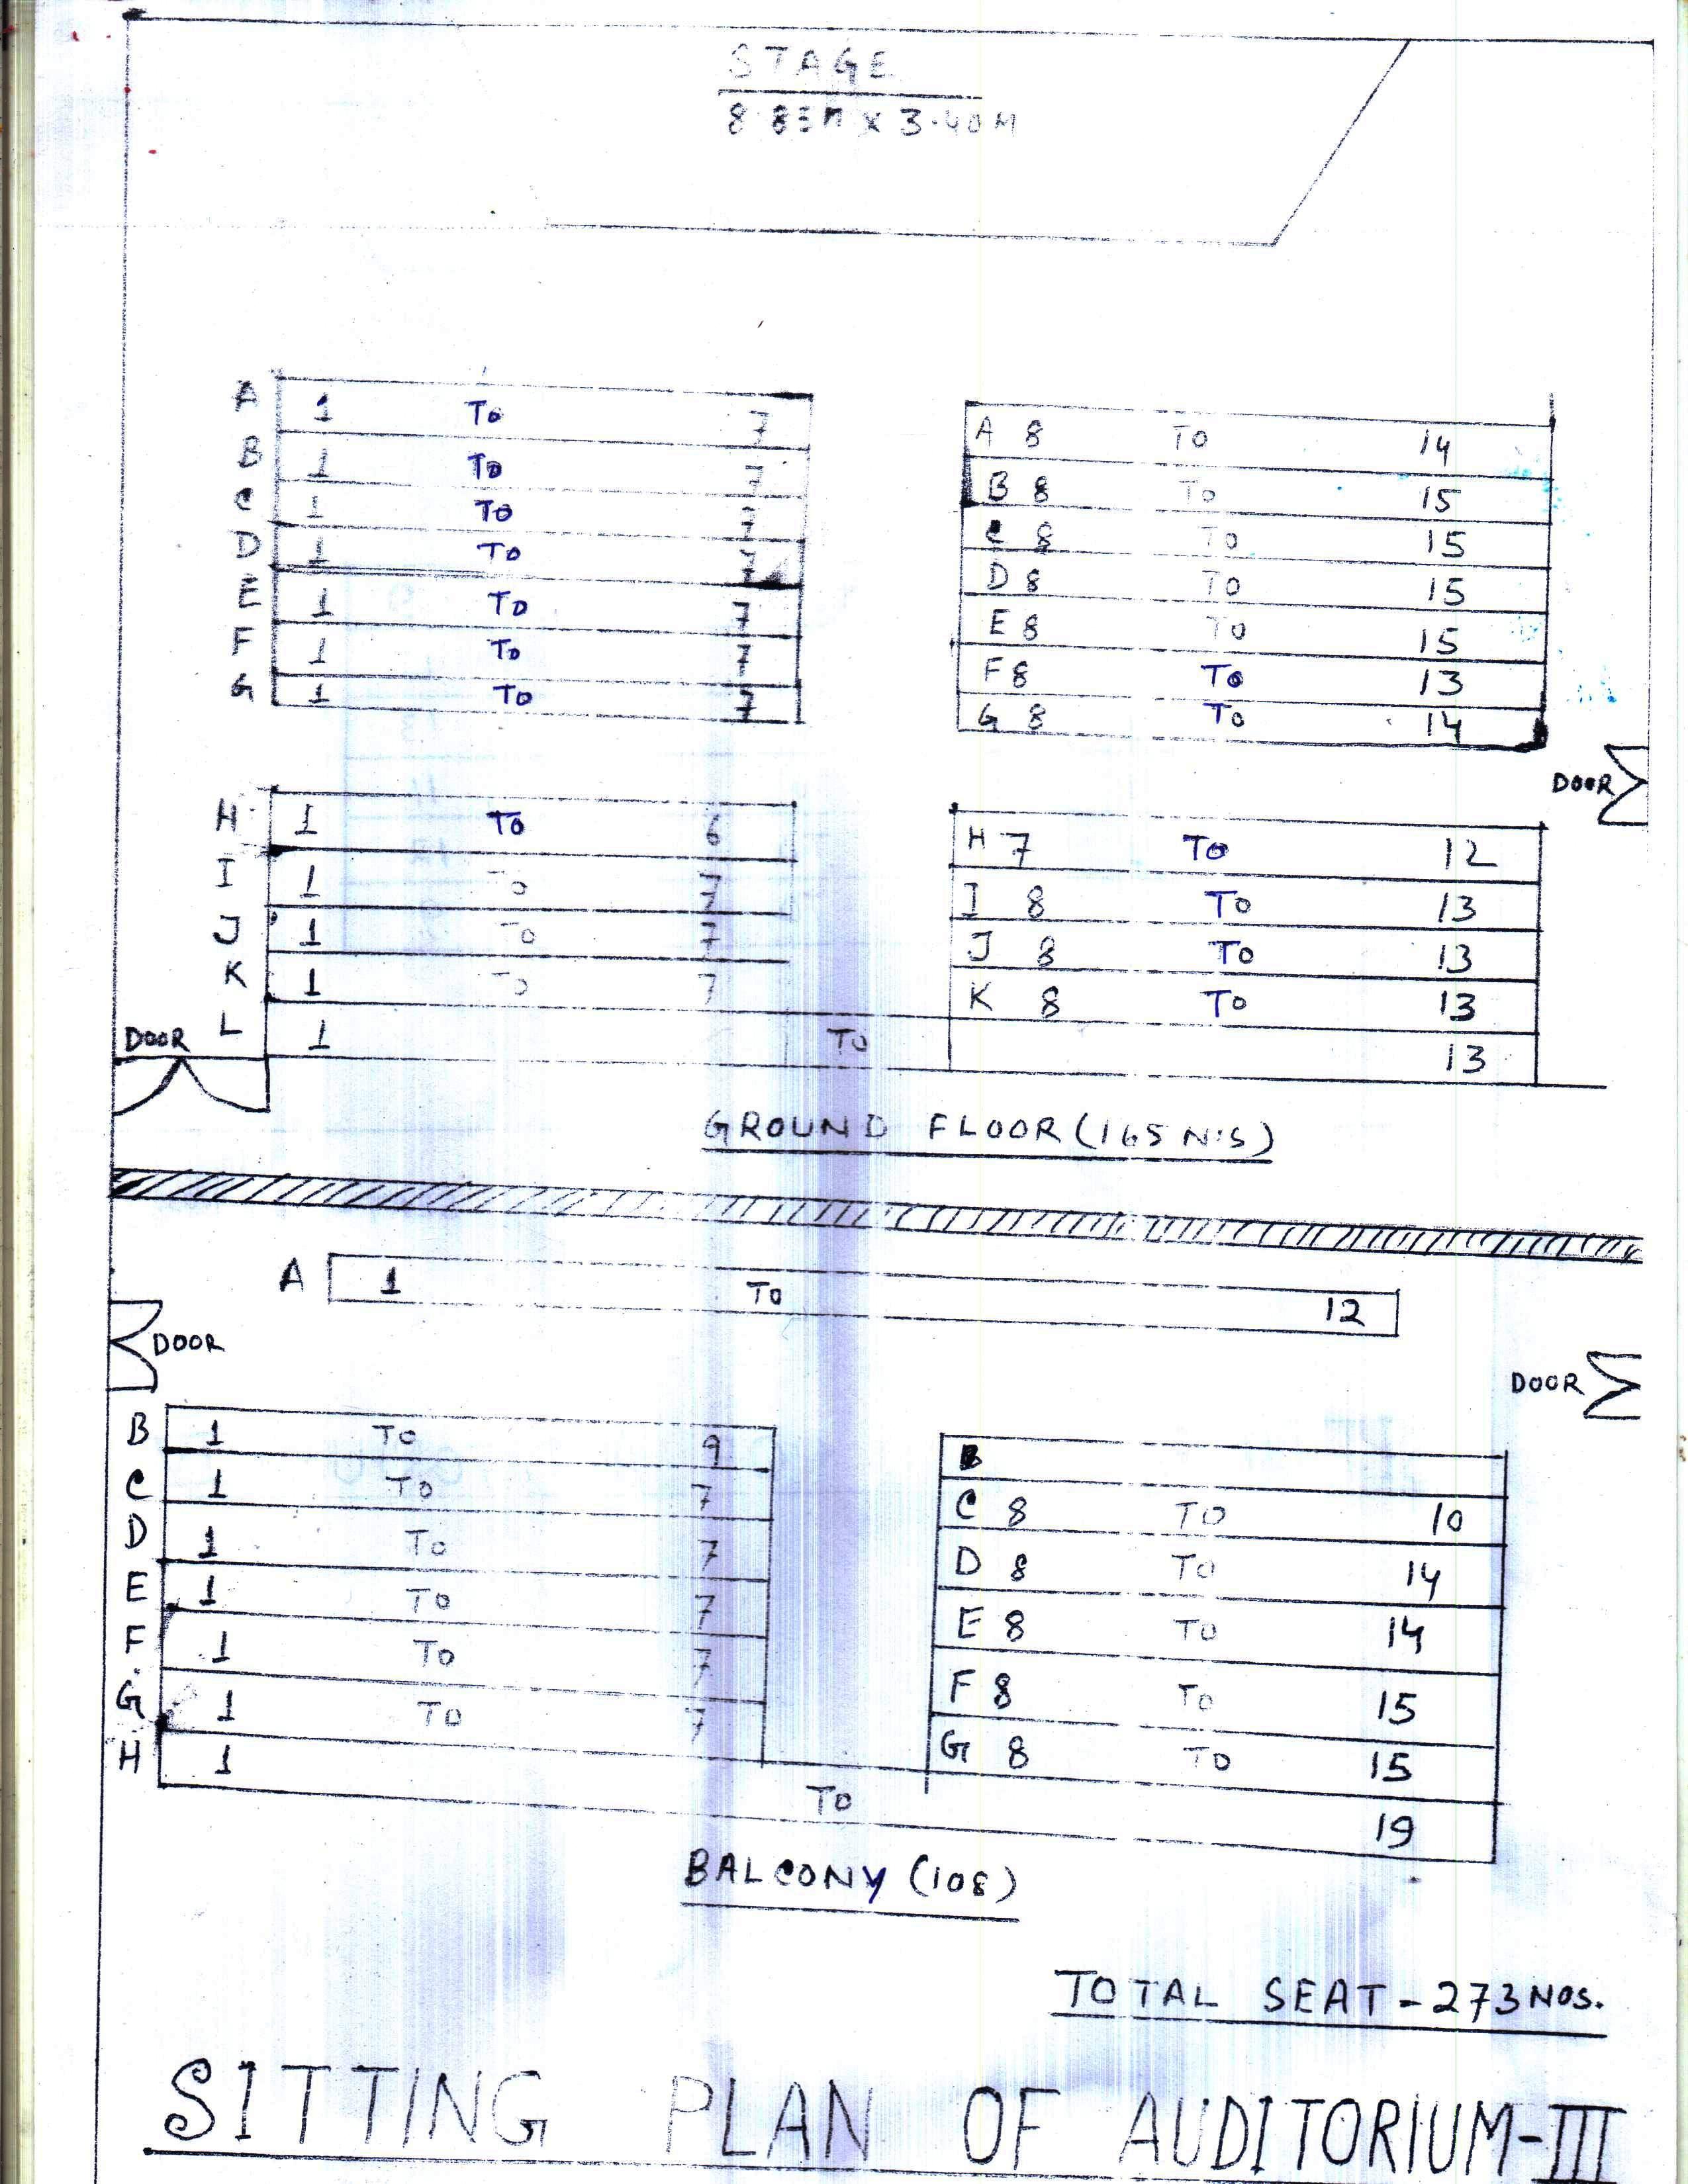 STAGE
8.85M X 3.40M
A 1 To 7 A 8 TO 14
B 1 To 7 B 8 To 15
C 1 To 7 C 8 To 15
D 1 To 7 D 8 To 15
E 1 To 7 E 8 To 15
F 1 To 7 F 8 To 13
G 1 To 7 G 8 To 14
DOOR
H 1 To 6 H 7 To 12
I 1 To 7 I 8 To 13
J 1 To 7 J 8 To 13
K 1 To 7 K 8 To 13
DOOR L 1 To 13
GROUND FLOOR (165 N:S)
A 1 To 12
DOOR
DOOR
B 1 To 9 B
C 1 To 7 C 8 TO 10
D 1 To 7 D 8 To 14
E 1 To 7 E 8 To 14
F 1 To 7 F 8 To 15
G 1 To 7 G 8 To 15
H 1 To 19
BALCONY (108)
TOTAL SEAT - 273 NOS.
SITTING PLAN OF AUDITORIUM-III